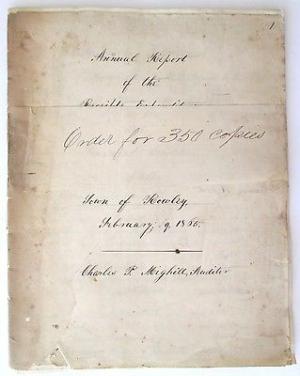 1
Annual Report
of the
Order for 350 copies
Town of Rowley
February, 9, 1860.
Charles P. Mighill, Auditor